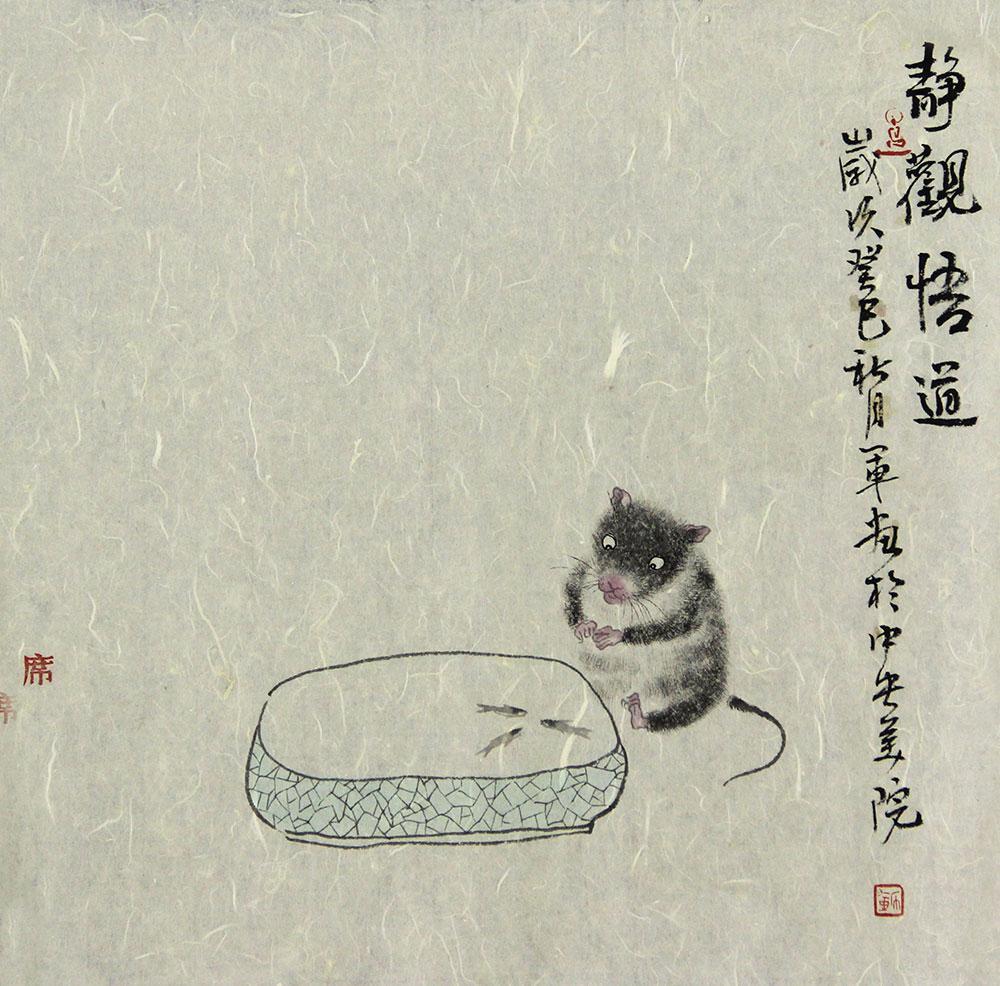 静觀悟道
歲次癸巳秋月军画於中央美院
席